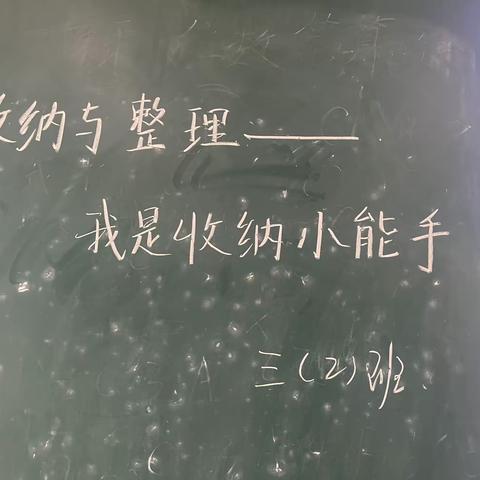 收纳与整理——
我是收纳小能手
三（2）班